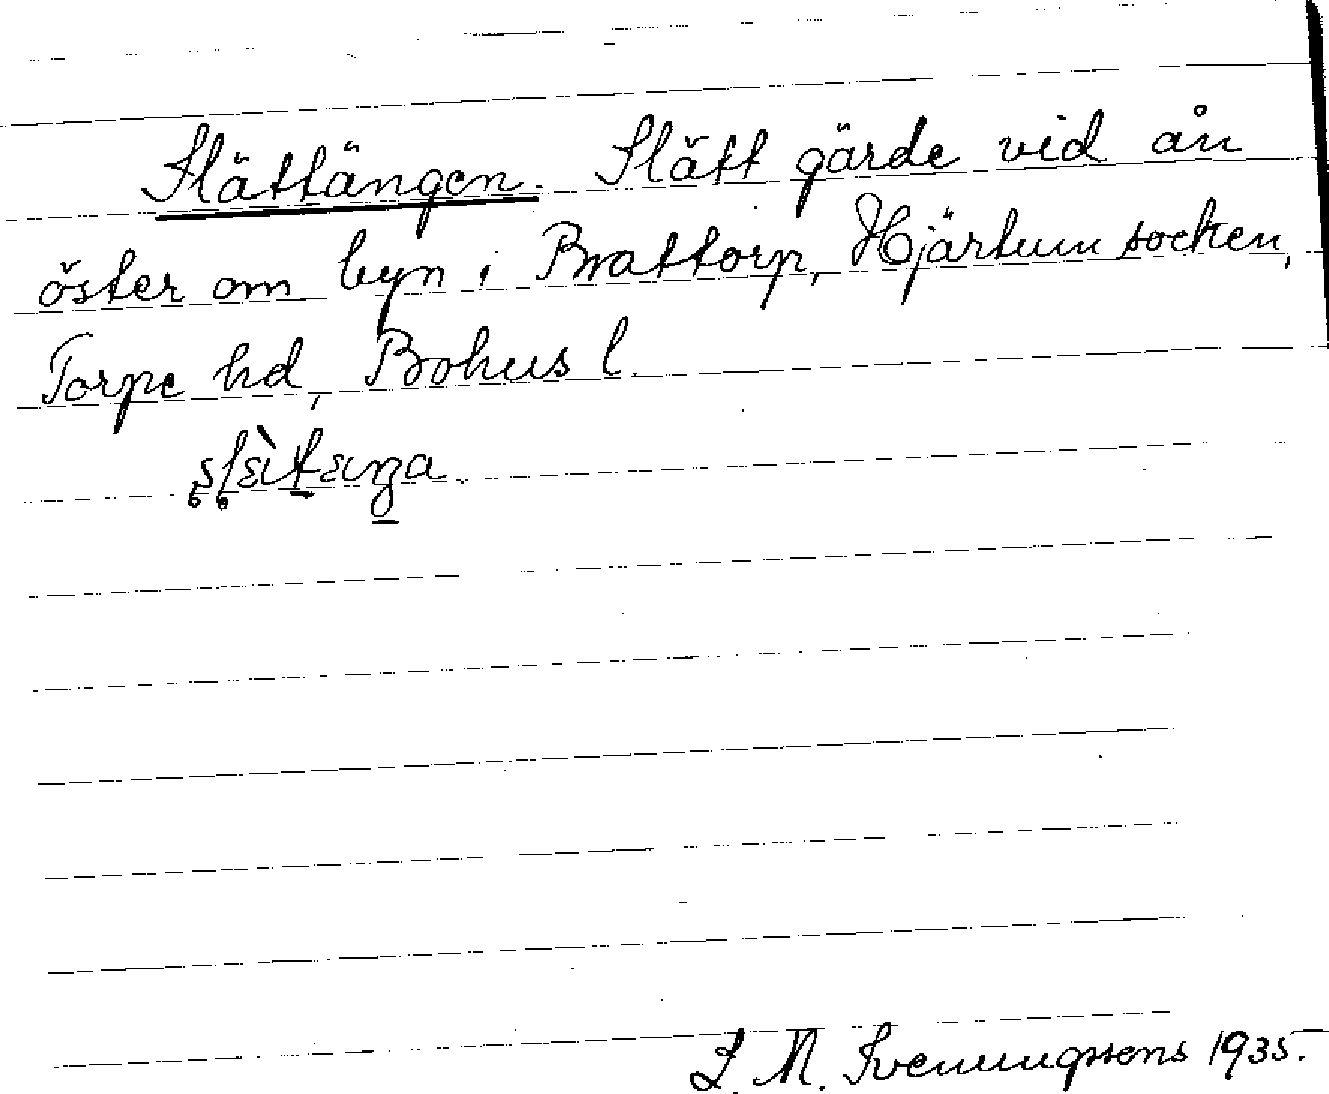 Slättängen. Slätt gärde vid ån
öster om byn i Brattorp, Hjärtum socken,
Torpe hd, Bohus l.
S. M. Svenungssens 1935.